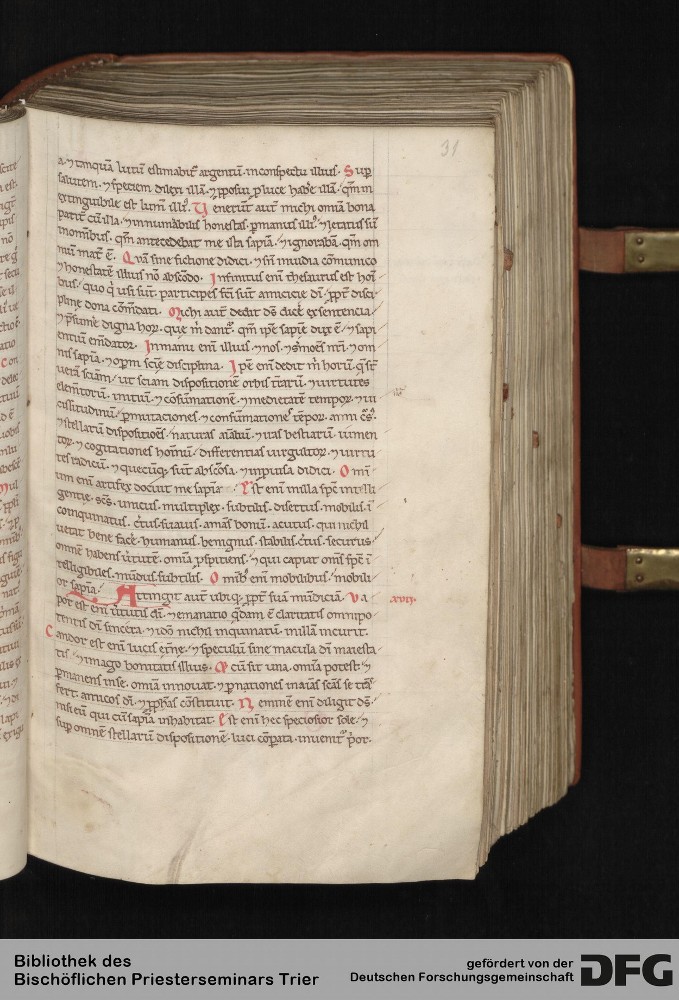 31
a. ⁊ tanquā lutū estimabit᷑ argentū inconspectu illius. Sup
salutem. ⁊ speciem dilexi illā. ⁊ ꝓposui ꝓ luce habe illā. qm̄ in
extinguibile est lum̄ illiꝰ. Uenerunt aut̄ michi omia bona
parit̄ cū illa. ⁊ innumabilis honestas ꝑ manus illiꝰ. ⁊ letatus sū
inomnibus. qm̄ antecedebat me ista sapīa. ⁊ ignorabā. qm̄ om
niū mat̄ ē. Quā sine fictione didici. ⁊ sn̄ inuidia cōmunico
⁊ honestatē illius nō abscōdo. Infinitus enī thesaurus est hoī
bus. quo q̇ usi sūt. participes fc̄i sūt amicicie dī. ꝓpt̄ disci
pline dona cōm̄dati. Michi aut̄ dedit ds̄ dice exsentencia
⁊ p̄sume digna hoꝝ. que m̄ dant᷑. qm̄ ipse sapīe dux ē. ⁊ sapi
entiū em̄dator. Inmanu enī illius. ⁊ nos. ⁊ s̄moēs nr̄i. ⁊ om
nis sapīa. ⁊ oꝑm scīe disciplina. Ipse enī dedit m̄ hoꝝ. q̄ st̄
uerā sciam. ut sciam dispositionē orbis t̄rarū. ⁊ uirtutes
elem̄toꝝ. initiū. ⁊ cōsūmationē. ⁊ medietatē tempoꝝ. ⁊ ui
cissitudinū. ꝑmutaciones. ⁊ consūmationes tēpoꝝ. anni c̄sꝰ.
⁊ stellarū dispositioēs. naturas aīaliū. ⁊ iras bestiarū. uimen
toꝝ. ⁊ cogitationes hom̄nū. differentias uirgultoꝝ. ⁊ uirtu
tes radicū. ⁊ quecūqꝫ sūt abscōsa. ⁊ inpuisa didici. Om̄
iū enī artifex docuit me sapīa. Est enī inilla spc̄ intelli
gentie. scs̄. unicus. multiplex. subtilis. disertus. mobilis. ī
coinquinatus. c̄tus. suauis. amās bonū. acutus. qui nichil
uetat bene face. humanus. benignus. stabilis. c̄tus. securus.
omnē habens ūtutē. omīa ꝓspitiens. ⁊ qui capiat om̄s spc̄ ī
telligibiles. mūdus. subtilis. Omībꝰ enī mobilibus. mobili
or sapīa. Attingit aut̄ ubiqꝫ ꝓpt̄ suā mūdiciā. Ua xvij.
por est enī uirtutis dī. ⁊ emanatio q̄dam ē claritatis omnipo
tentis dī sincera. ⁊ ideo nichil inquinatū inillā incurrit.
Candor est enī lucis et̄ne. ⁊ speculū sine macula dī maiesta
tis. ⁊ imago bonitatis illius. Et cū sit una. omīa potest. ⁊
ꝑmanens inse. omīa innouat. ⁊ ꝑ nationes inaīas scās se t̄ns
fert. amicos dī. ⁊ ꝓphas cōstituit. Neminē enī diligit ds̄.
nisi eū qui cū sapīa inhabitat. Est enī hec speciosior sole. ⁊
sup omnē stellarū dispositionē. luci cōparata. inuenit᷑ p̄or.
Bibliothek des
Bischöflichen Priesterseminars Trier
gefördert von der
Deutschen Forschungsgemeinschaft
DFG